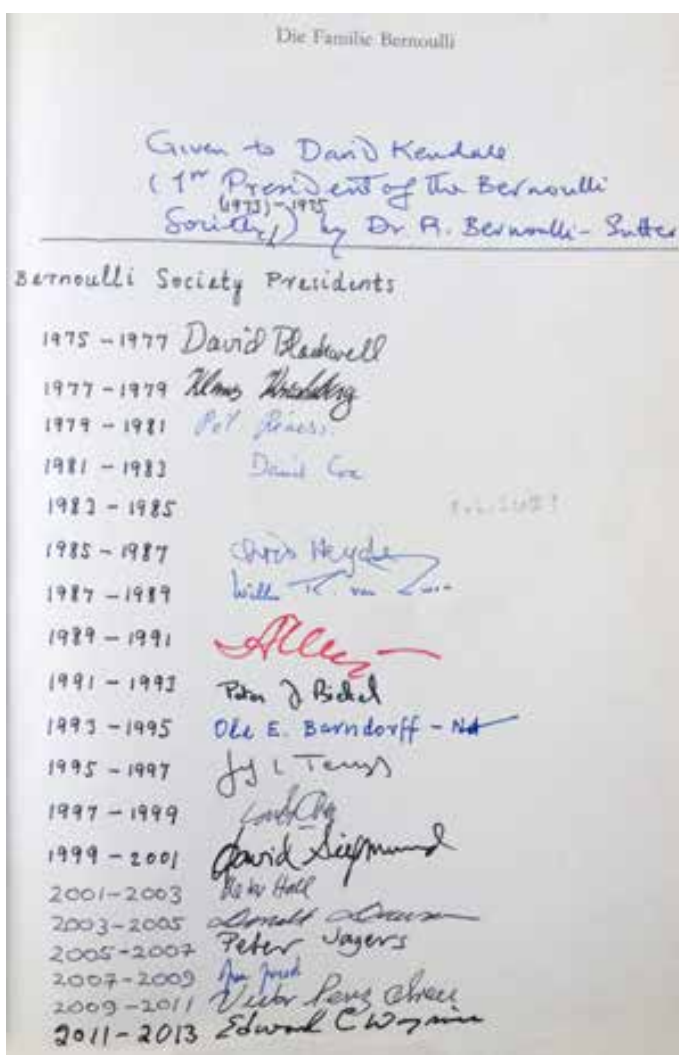 Die Familie Bernoulli
Given to David Kendall
(1st President of the Bernoulli
(1973)-1975
Society,) by Dr R. Bernoulli-Sutter
Bernoulli Society Presidents
1975-1977 David Blackwell
1977-1979 Klaus Krickeberg
1979-1981
1981-1983 David Cox
1983-1985
1985-1987 Chris Heyde
1987-1989 Willem R. van
1989-1991
1991-1993 Peter J Bickel
1993-1995 Ole E. Barndorff-
1995-1997
1997-1999
1999-2001 David Siegmund
2001-2003 Peter Hall
2003-2005 Donald Dawson
2005-2007 Peter Jagers
2007-2009
2009-2011 Victor Perez Abreu
2011-2013 Edward C Waymire